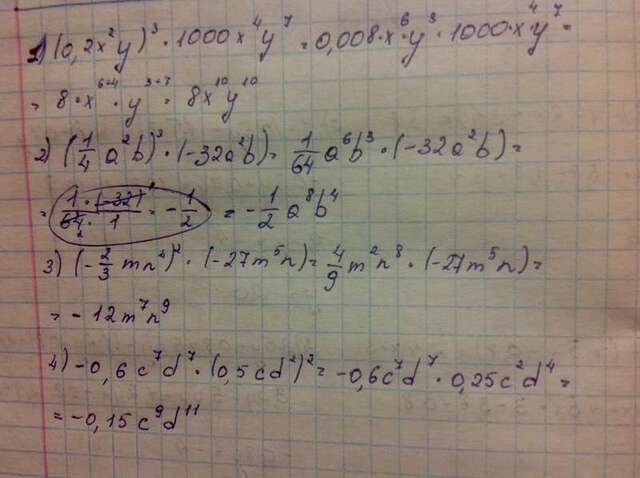 1) (0,2x²y)³ · 1000x⁴y⁷ = 0,008·x⁶·y³·1000·x⁴y⁷ =
= 8·x⁶⁺⁴·y³⁺⁷ = 8x¹⁰y¹⁰
2) (1/4 a²b)³ · (-32a²b) = 1/64 a⁶b³ · (-32a²b) =
= 1·(-32)/64·1 = -1/2 = -1/2 a⁸b⁴
3) (-2/3 mn⁴)² · (-27m⁵n) = 4/9 m²n⁸ · (-27m⁵n) =
= -12m⁷n⁹
4) -0,6c⁷d⁷ · (0,5cd²)² = -0,6c⁷d⁷ · 0,25c²d⁴ =
= -0,15c⁹d¹¹